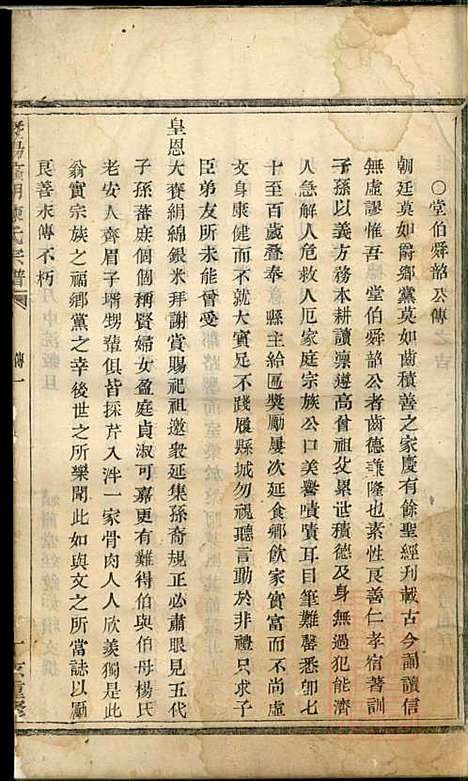 ○堂伯舜韶公傳
朝廷莫如爵鄉黨莫如齒積善之家慶有餘聖經刋載古今誦讀信
無虛謬惟吾堂伯舜韶公者齒德兼隆也素性良善仁孝宿著訓
子孫以義方務本耕讀凜遵高曾祖父累世積德及身無過犯能濟
人急解人危救人厄家庭宗族公口美譽嘖嘖耳目筆難罄悉卽七
十至百歲叠奉縣主給匾奬勵屢次延食鄉飲家實富而不尚虛
文身康健而不做大賓足不踐履縣城勿視聽言動於非禮只求子
臣弟友所未能曾受
皇恩大賚絹綿銀米拜謝賞賜祀祖邀衆延集孫奇規正必肅眼見五代
子孫蕃庶個個稱賢婦女盈庭貞淑可嘉更有難得伯與伯母楊氏
老安人齊眉子壻甥輩俱皆採芹入泮一家骨肉人人欣羨獨是此
翁實宗族之福鄉黨之幸後世之所樂聞此如與文之所當誌以勵
良善永傳不朽
陳氏宗譜
傳一
重修